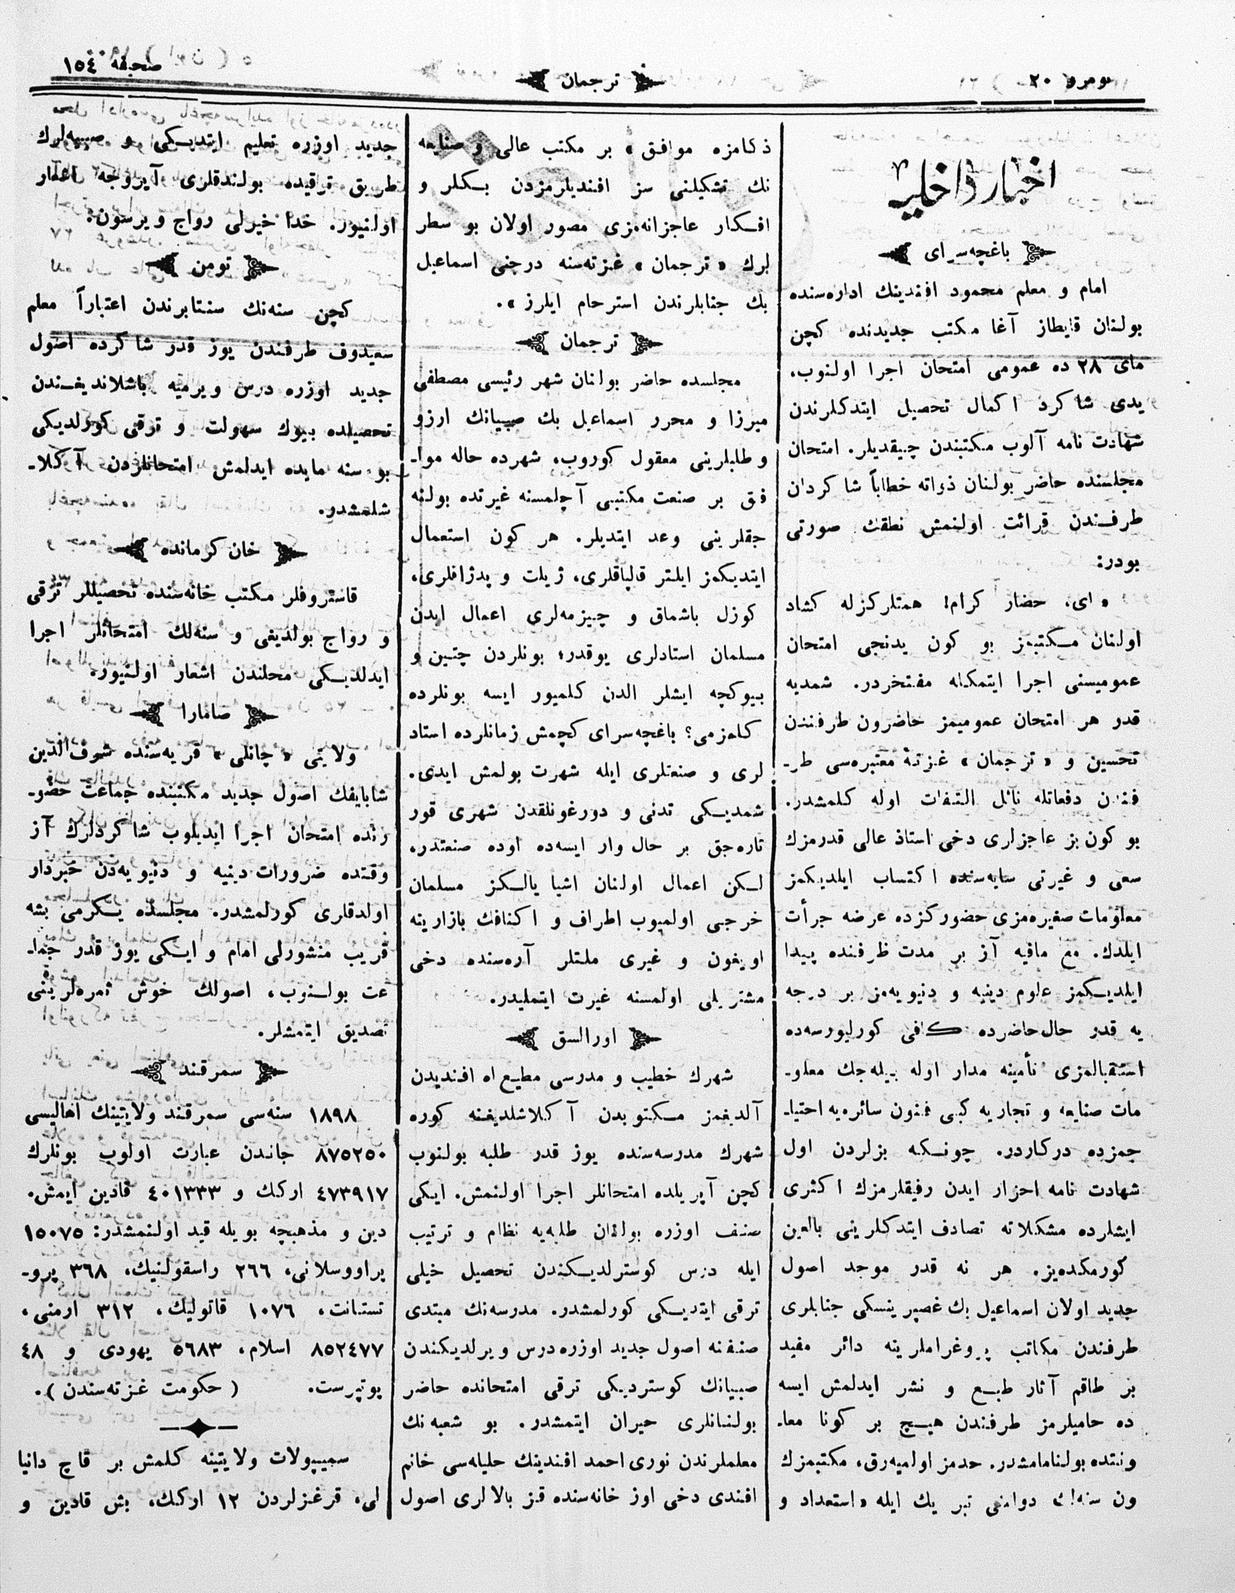 نومرو ٢٠
ترجمان
صحيفه ١٥٤
اخبار داخليه
باغچه‌سراى
امام و معلم محمود افندينك اداره‌سنده
بولنان قايطاز آغا مكتب جديدنده كچن
ماى ٢٨ ده عمومى امتحان اجرا اولنوب،
يدى شاكرد اكمال تحصيل ايتدكلرندن
شهادت نامه آلوب مكتبندن چيقديلر. امتحان
مجلسنده حاضر بولنان ذواته خطاباً شاكردان
طرفندن قرائت اولنمش نطقك صورتى
بودر:
« اى، حضار كرام! همتلركزله كشاد
اولنان مكتبمز بو كون يدنجى امتحان
عموميسنى اجرا ايتمكله مفتخردر. شمديه
قدر هر امتحان عموميمز حاضرون طرفندن
تحسين و « ترجمان » غزتهٔ معتبره‌سى طر‍ـ
فندن دفعاتله نائل التفات اوله كلمشدر.
بو كون بز عاجزلرى دخى استاذ عالى قدرمزك
سعى و غيرتى سايه‌سنده اكتساب ايلديكمز
معلومات صغيره‌مزى حضوركزده عرضه جرأت
ايلدك. مع مافيه آز بر مدت ظرفنده پيدا
ايلديكمز علوم دينيه و دنيويه‌مز بر درجه
يه قدر حال حاضرده كافى كورليورسه‌ده
استقبالمزى تأمينه مدار اوله بيله‌جك معلو‍ـ
مات صنايعه و تجاريه كبى فنون سائره‌يه احتيا‍ـ
جمزده دركاردر. چونكه بزلردن اول
شهادت نامه احراز ايدن رفيقلرمزك اكثرى
ايشلرده مشكلاته تصادف ايتدكلرينى بالعين
كورمكده‌يز. هر نه قدر موجد اصول
جديد اولان اسماعيل بك غصپرينسكى جنابلرى
طرفندن مكاتب پروغراملرينه دائر مفيد
بر طاقم آثار طبع و نشر ايدلمش ايسه
ده حاميلرمز طرفندن هيچ بر كونا معا‍ـ
ونتده بولنامامشدر. حدمز اولميه‌رق، مكتبمزك
ون سنه‌لك دوامنى تبريك ايله « استعداد و
ذكامزه موافق » بر مكتب عالى و صنايعه
نك تشكيلنى سز افنديلرمزدن بكلر و
افكار عاجزانه‌مزى مصور اولان بو سطر
لرك « ترجمان » غزته‌سنه درجنى اسماعيل
بك جنابلرندن استرحام ايلرز ».
ترجمان
مجلسده حاضر بولنان شهر رئيسى مصطفى
ميرزا و محرر اسماعيل بك صبيانك ارزو
و طلبلرينى معقول كوروب، شهرده حاله موا‍ـ
فق بر صنعت مكتبى آچلمسنه غيرتده بولنه
جقلرينى وعد ايتديلر. هر كون استعمال
ايتديكمز ايلتر قالپاقلرى، ژيلت و پدژاقلرى،
كوزل باشماق و چيزمه‌لرى اعمال ايدن
مسلمان استادلرى يوقدر؛ بونلردن چتين و
بيوكچه ايشلر الدن كلميور ايسه بونلرده
كلمزمى؟ باغچه‌سراى كچمش زمانلرده استاد
لرى و صنعتلرى ايله شهرت بولمش ايدى.
شمديكى تدنى و دورغونلقدن شهرى قور
تاره‌جق بر حال وار ايسه‌ده اوده صنعتدر.
لكن اعمال اولنان اشيا يالكز مسلمان
خرجى اولميوب اطراف و اكنافك بازارينه
اويغون و غيرى ملتلر آره‌سنده دخى
مشتريلى اولمسنه غيرت ايتمليدر.
اورالسق
شهرك خطيب و مدرسى مطيع‌اه افنديدن
آلديغمز مكتوبدن آكلاشلديغنه كوره
شهرك مدرسه‌سنده يوز قدر طلبه بولنوب
كچن آپريلده امتحانلر اجرا اولنمش. ايكى
صنف اوزره بولنان طلبه‌يه نظام و ترتيب
ايله درس كوسترلديكندن تحصيل خيلى
ترقى ايتديكى كورلمشدر. مدرسه‌نك مبتدى
صنفنه اصول جديد اوزره درس ويرلديكندن
صبيانك كوسترديكى ترقى امتحانده حاضر
بولنانلرى حيران ايتمشدر. بو شعبه‌نك
معلملرندن نورى احمد افندينك حليله‌سى خانم
افندى دخى اوز خانه‌سنده قز بالالرى اصول
جديد اوزره تعليم ايتديكى و صبيه‌لرك
طريق ترقيده بولندقلرى آيروجه اشعار
اولنيور. خدا خيرلى رواج ويرسون.
تومن
كچن سنه‌نك سنتابرندن اعتباراً معلم
سعيدوف طرفندن يوز قدر شاكرده اصول
جديد اوزره درس ويرميه باشلانديغندن
تحصيلده بيوك سهولت و ترقى كورلديكى
بو سنه مايده ايدلمش امتحانلردن آكلا‍ـ
شلمشدر.
خان كرمانده
قاستروفلر مكتب خانه‌سنده تحصيللر ترقى
و رواج بولديغى و سنه‌لك امتحانلر اجرا
ايدلديكى محلندن اشعار اولنيور.
صامارا
ولايتى « چانلى » قريه‌سنده شرف الدين
شابايفك اصول جديد مكتبنده جماعت حضو‍ـ
رنده امتحان اجرا ايديلوب شاكردلرك آز
وقتده ضرورات دينيه و دنيويه‌دن خبردار
اولدقلرى كورلمشدر. مجلسده يكرمى بشه
قريب منشورلى امام و ايكى يوز قدر جما‍ـ
عت بولنوب، اصولك خوش ثمره‌لرينى
تصديق ايتمشلر.
سمرقند
١٨٩٨ سنه‌سى سمرقند ولايتينك اهاليسى
٨٧٥٢٥٠ جاندن عبارت اولوب بونلرك
٤٧٣٩١٧ اركك و ٤٠١٣٣٣ قادين ايمش.
دين و مذهبچه بويله قيد اولنمشدر: ١٥٠٧٥
پراووسلانى، ٢٦٦ راسقولنيك، ٣٦٨ پرو‍ـ
تستانت، ١٠٧٦ قاتوليك، ٣١٢ ارمنى،
٨٥٢٤٧٧ اسلام، ٥٦٨٣ يهودى و ٤٨
پوتپرست. ( حكومت غزته‌سندن ).
سميپولات ولايتينه كلمش بر قاچ دانيا
لى، قرغزلردن ١٢ اركك، بش قادين و